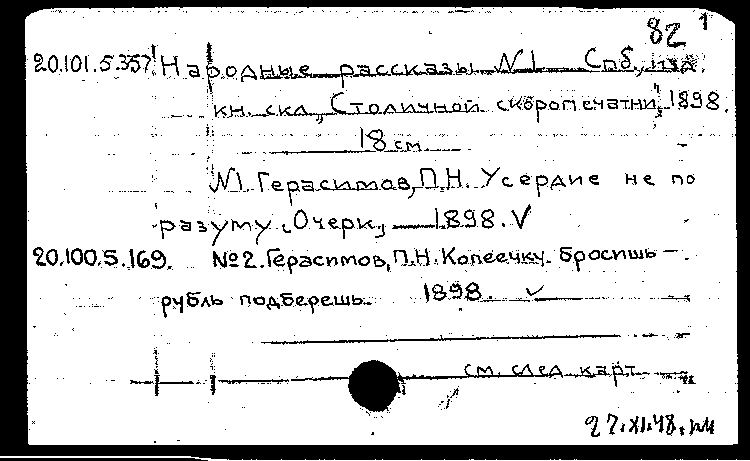 82 1
20.101.5.357. Народные рассказы №1 Спб., изд.
кн. скл. „Столичной скоропечатни", 1898.
18 см.
№1. Герасимов, П.Н. Усердие не по
разуму. Очерк. 1898. V
20.100.5.169. №2. Герасимов, П.Н. Копеечку бросишь –
рубль подберешь. 1898. ✓
см. след. карт.
27.XI.48.